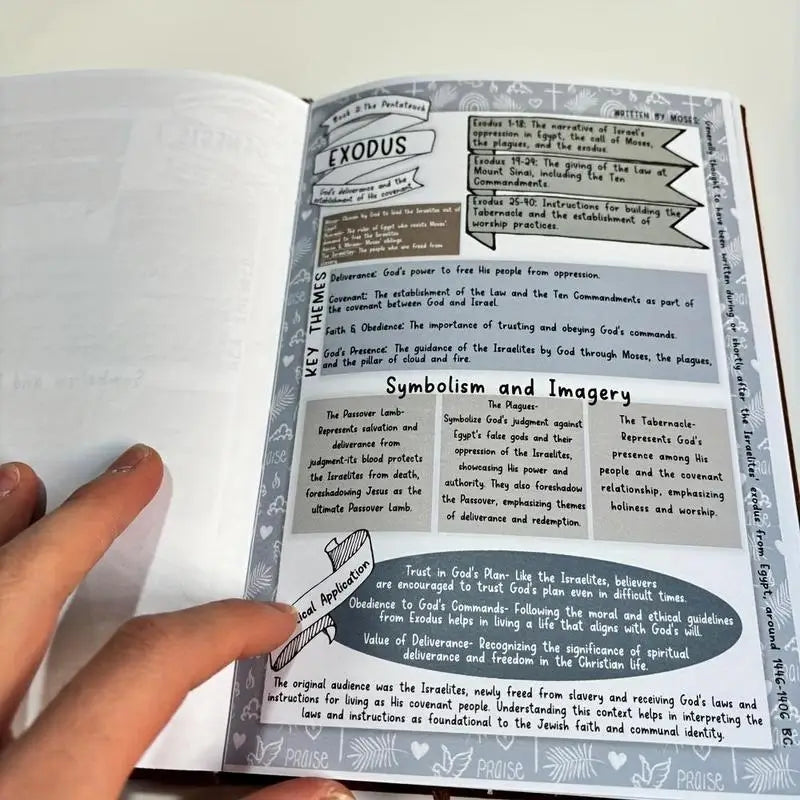 Book 2: The Pentateuch
EXODUS
God's deliverance and the
establishment of His covenant
WRITTEN BY MOSES
Exodus 1-18: The narrative of Israel's
oppression in Egypt, the call of Moses,
the plagues, and the exodus.
Exodus 19-24: The giving of the law at
Mount Sinai, including the Ten
Commandments.
Exodus 25-40: Instructions for building the
Tabernacle and the establishment of
worship practices.
Moses- Chosen by God to lead the Israelites out of
Egypt
Pharaoh- The ruler of Egypt who resists Moses'
demand to free the Israelites
Aaron & Miriam- Moses' siblings
The Israelites- The people who are freed from
slavery
KEY THEMES
Deliverance: God's power to free His people from oppression.
Covenant: The establishment of the Law and the Ten Commandments as part of
the covenant between God and Israel.
Faith & Obedience: The importance of trusting and obeying God's commands.
God's Presence: The guidance of the Israelites by God through Moses, the plagues,
and the pillar of cloud and fire.
Symbolism and Imagery
The Passover Lamb-
Represents salvation and
deliverance from
judgment-its blood protects
the Israelites from death,
foreshadowing Jesus as the
ultimate Passover Lamb.
The Plagues-
Symbolize God's judgment against
Egypt's false gods and their
oppression of the Israelites,
showcasing His power and
authority. They also foreshadow
the Passover, emphasizing themes
of deliverance and redemption.
The Tabernacle-
Represents God's
presence among His
people and the covenant
relationship, emphasizing
holiness and worship.
ical Application
Trust in God's Plan- Like the Israelites, believers
are encouraged to trust God's plan even in difficult times.
Obedience to God's Commands- Following the moral and ethical guidelines
from Exodus helps in living a life that aligns with God's will.
Value of Deliverance- Recognizing the significance of spiritual
deliverance and freedom in the Christian life.
The original audience was the Israelites, newly freed from slavery and receiving God's laws and
instructions for living as His covenant people. Understanding this context helps in interpreting the
laws and instructions as foundational to the Jewish faith and communal identity.
Generally thought to have been written during or shortly after the Israelites' exodus from Egypt, around 1446-1406 BC
PRAISE
PRAISE
PRAISE